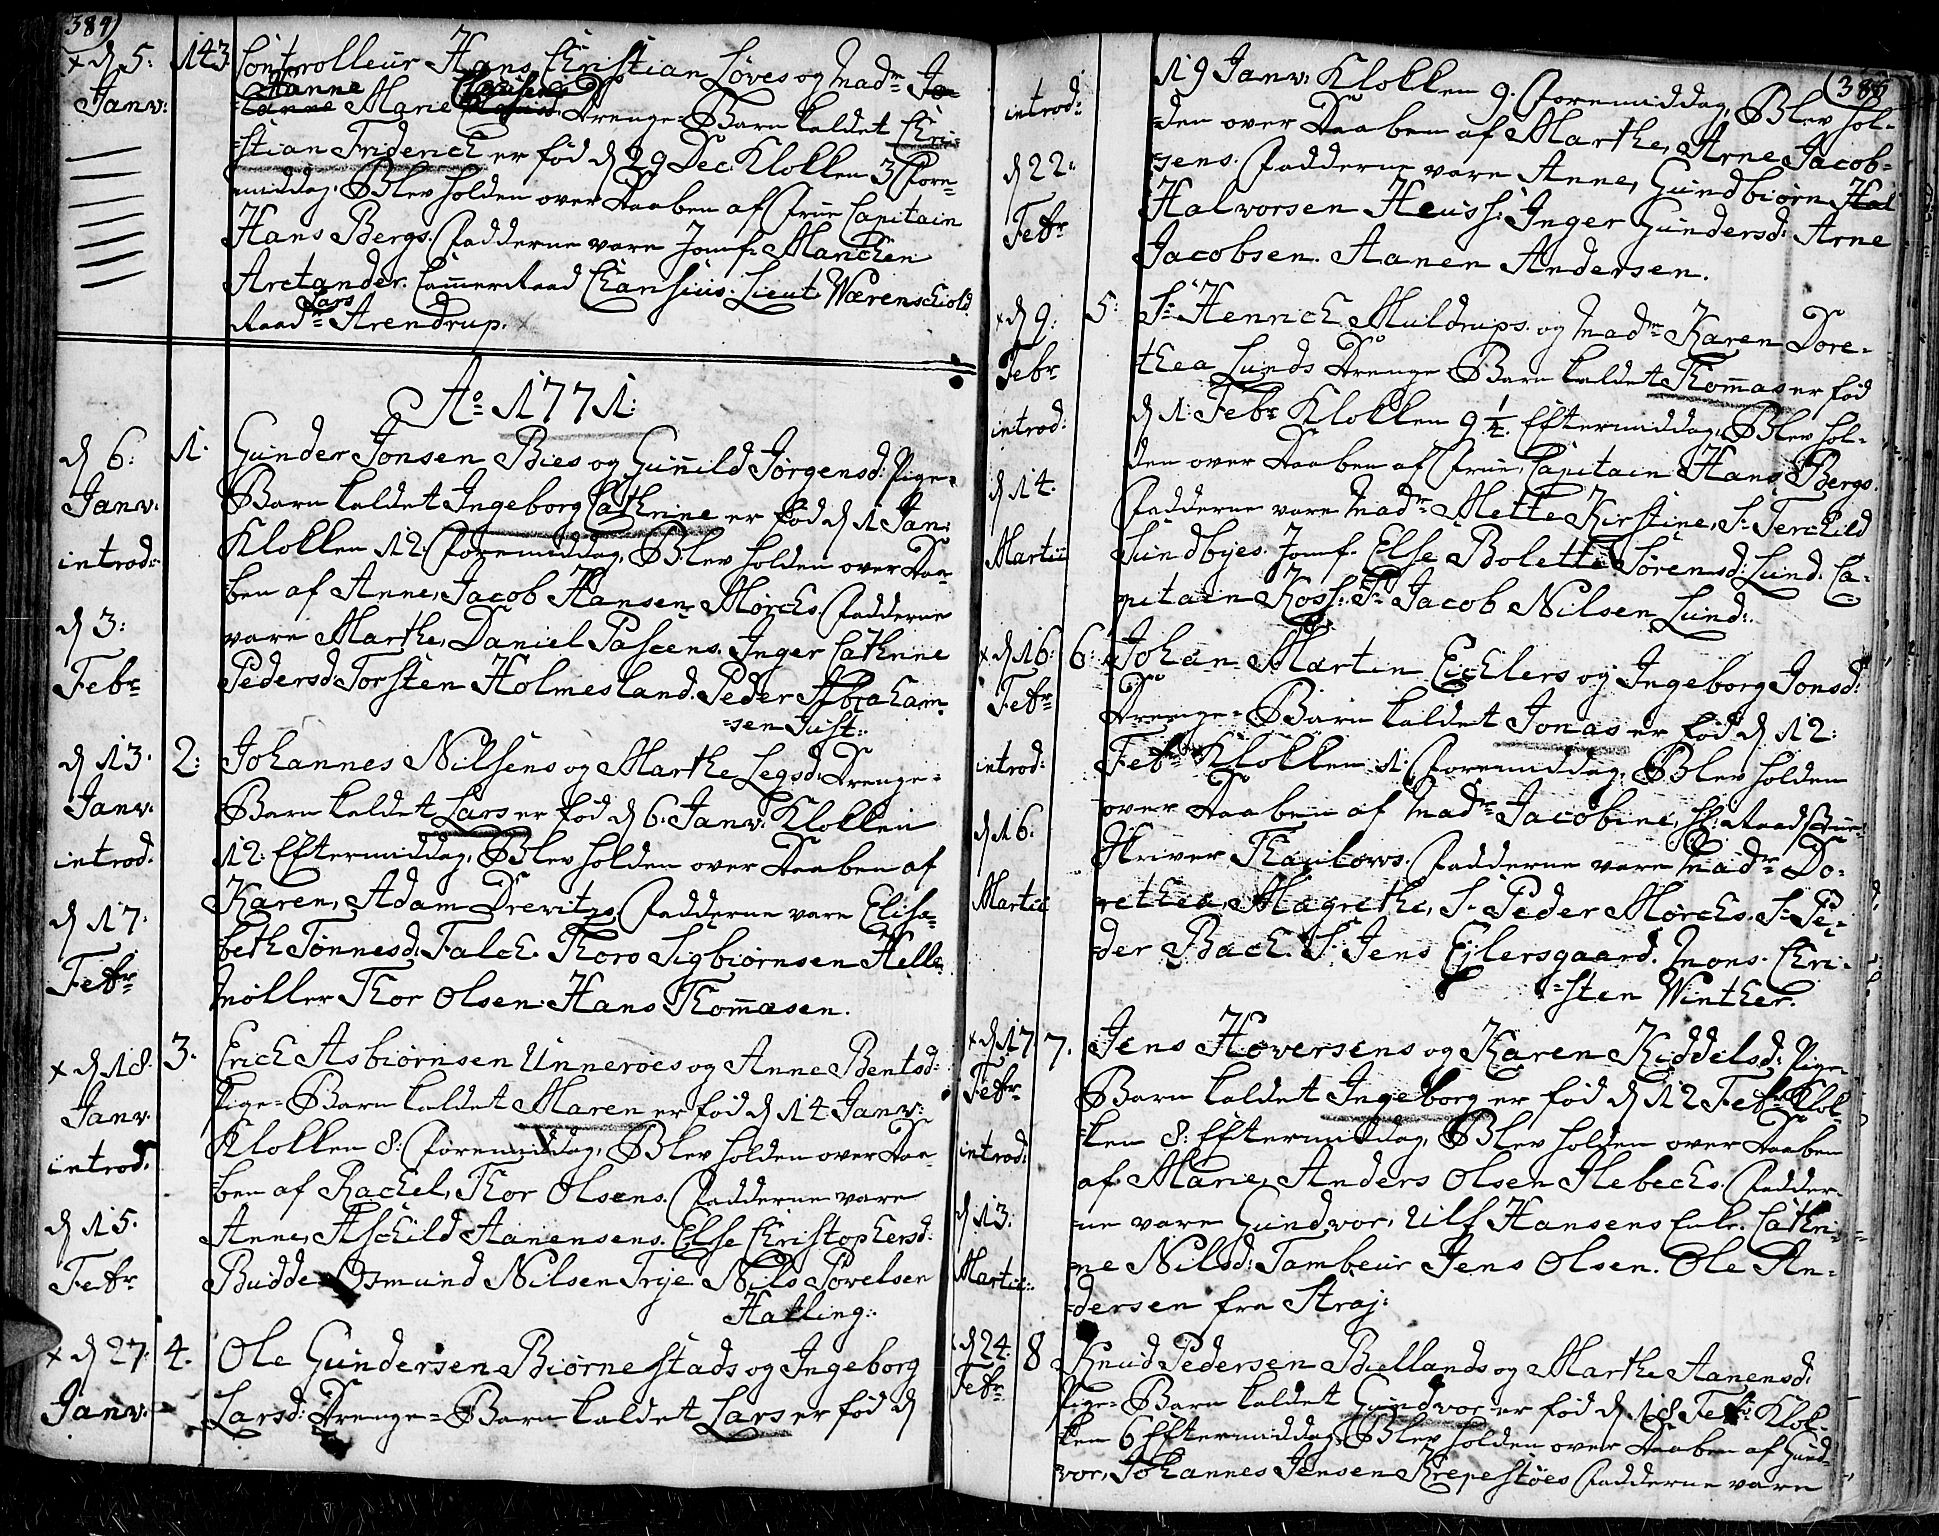 384)
x d 5: Janv: 143. Controlleur Hans Christian Löves og Mad: Jo-
Hanne Clausens
hanne Marie Drenge-Barn kaldet Chri-
stian Friderich er föd d 29 Dec: Klokken 3 Fore-
middag, Blev holden over Daaben af Frue Capitain
Hans Bergs. Fadderne vare Jomf: Manchen
Arctander. Cammer Raad Charisius. Lieut: Wærenschiold.
Lars
Raad Arendrup.
Ao 1771:
d 6: Janv: introd: d 3: Febr 1. Gunder Jonsen Bies og Gunnild Jörgensd: Pige-
Barn kaldet Ingeborg Cathrine er föd d 1 Jan:
Klokken 12: Formiddag, Blev holden over Daa-
ben af Anne, Jacob Hansen Mörchs. Fadderne
vare Marthe, Daniel Inger Cathrine
Pedersd: Torsten Holmesland. Peder Abraham-
sen Just:
d 13. Janv: introd. d 17. Febr 2: Johannes Nilsens og Marthe Legsd: Drenge-
Barn kaldet Lars er föd d 6. Janv: Klokken
12: Eftermiddag, Blev holden over Daaben af
Karen, Adam Drevitzes. Fadderne vare Elisa-
beth Tönnesd: Falch. Thoro Sigbiörnsen Helle
Möller Thor Olsen. Hans Thommasen.
x d 18. Janv: introd: d 15. Febr 3. Erich Asbiörnsen Unneroes og Anne Bentsd:
Pige-Barn kaldet Maren er föd d 14 Janv:
Klokken 8: Formiddag, Blev holden over Daa-
ben af Rachel, Thor Olsens. Fadderne vare
Anne, Aschild Aanensens. Else Christophersd:
Budde. Osmund Nilsen Nils Povelsen
Halling:
x d 27: Janv: 4. Ole Gundersen Biörnestads og Ingeborg
Larsd: Drenge-Barn kaldet Lars er föd d
385
introd: d 22: Febr 19 Janv: Klokken 9. Formiddag, Blev hol-
den over Daaben af Marthe, Arne Jacob-
sens. Fadderne vare Anne, Gundbiörn Hal
Halvorsen Inger Gundersd: Arne
Jacobsen. Aanen Andersen.
x d 9: Febr introd: d 14. Martii 5: Sr Henrich Muldrups og Mad: Karen Dore-
thea Lunds Drenge Barn kaldet Thommas er föd
d 1: Febr Klokken 9 1/4. Eftermiddag, Blev hol-
den over Daaben af Frue, Capitain Hans Bergs.
Fadderne vare Mad: Mette Kirstine, Sr Terchild
Sundbyes. Jomf. Else Bolette Sörensd: Lund. Ca-
pitain Sr Jacob Nilsen Lund:
x d 16: Febr introd: d 16. Martii 6: Johan Martin Eichlers og Ingeborg Jonsd:
Drenge-Barn kaldet Jonas er föd d 12:
Febr Klokken 1: Formiddag, Blev holden
over Daaben af Mad: Jacobine, Raad
Skriver Thaulows. Fadderne vare Mad: Do-
rethea Magrethe, Sr Peder Mörchs. Sr Pe-
der Bach. Sr Jens Ejlersgaard. Mons: Chri-
sten Winther.
x d 17 Febr introd: d 13. Martii: 7. Jens Hoversens og Karen Kiddelsd: Pige-
Barn kaldet Ingeborg er föd d 12 Febr Klok-
ken 8: Eftermiddag, Blev holden over Daaben
af Marie, Anders Olsen Flebechs. Fadder-
ne vare Gundvor, Ulf Hansens Enke. Cathri-
ne Nilsd: Tambeur Jens Olsen. Ole An-
dersen fra Straj:
d 24. Febr 8 Knud Pedersen Biellands og Marthe Aanensd:
Pige-Barn kaldet Gundvor er föd d 18 Febr Klok-
ken 6 Eftermiddag, Blev holden over Daaben af Gund-
vor, Johannes Jensen Krepestöes Fadderne vare